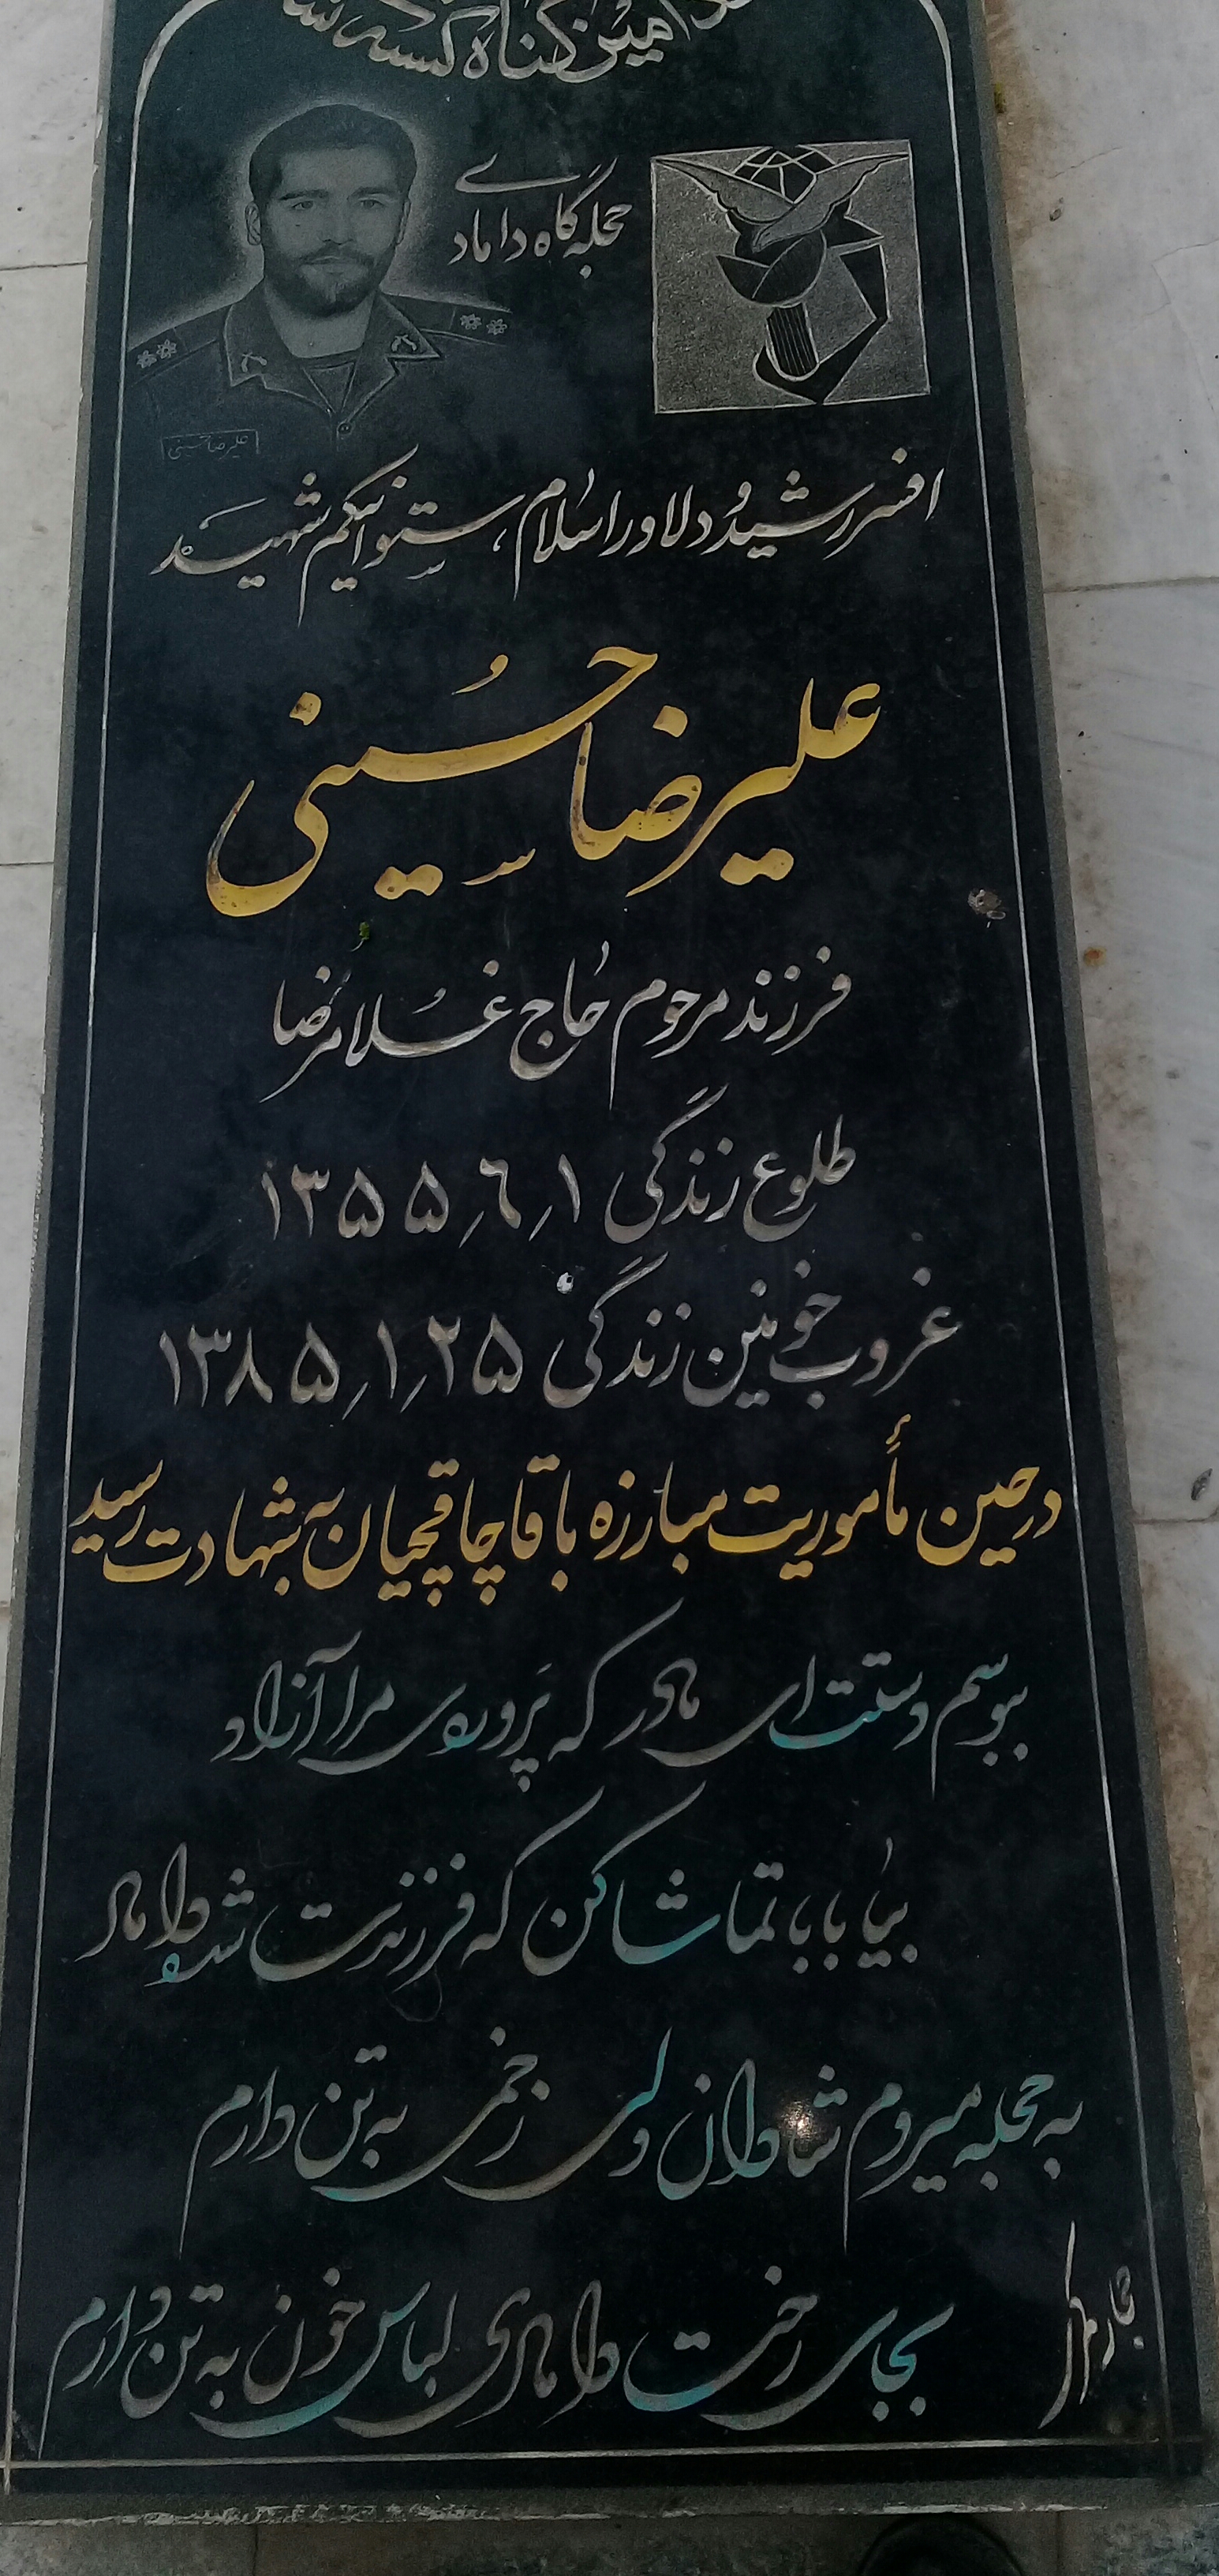 امین گناه کسیکه
حجله گاه دامادی
علیرضا حسینی
افسر رشید و دلاور اسلام، ستوانیکم شهید
علیرضا حسینی
فرزند مرحوم حاج غلامرضا
طلوع زندگی ۱٫۶٫۱۳۵۵
غروب خونین زندگی ۲۵٫۱٫۱۳۸۵
درحین مأموریت مبارزه با قاچاقچیان به شهادت رسید
ببوسم دستت ای مادر که پروردی مرا آزاد
بیا بابا تماشا کن که فرزندت شده داماد
به حجله میروم شادان ولی زخمی به تن دارم
بجای رخت دامادی لباس خون به تن دارم